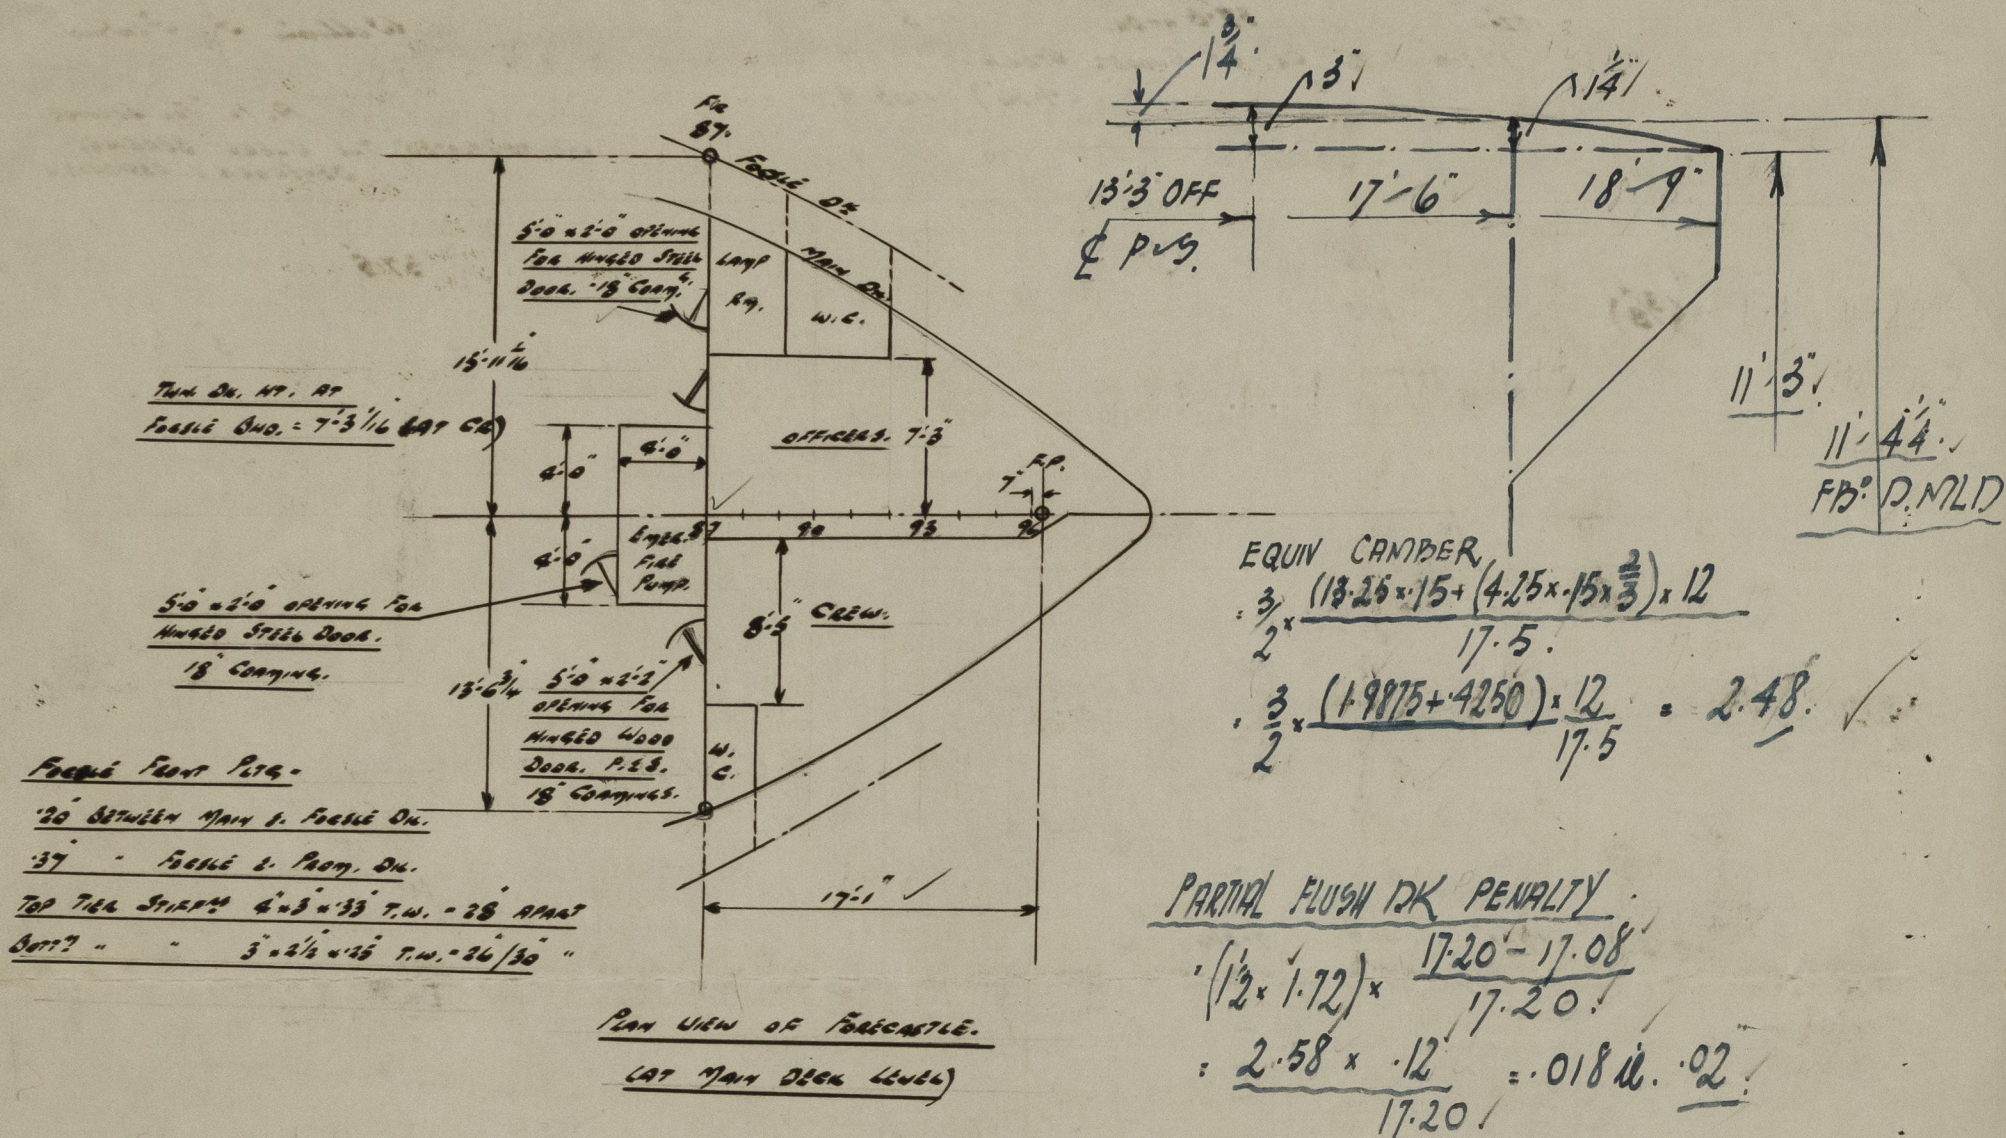 FR
87.
FOCSLE DK
5'-0" x 2'-0" OPENING
FOR HINGED STEEL
DOOR. 18" COAMG.
LAMP
RM.
MAIN DK.
W.C.
15'-11 1/16"
TWN. DK. HT. AT
FOCSLE BHD. = 7'-3 1/16 (AT CR)
4'-0"
4'-0"
OFFICERS. 7'-3"
F.P.
7"
87 90 93 96
4'-0"
EMER.
FIRE
PUMP.
5'-0" x 2'-0" OPENING FOR
HINGED STEEL DOOR.
18" COAMING.
8'-5" CREW.
13'-6 3/4"
5'-0" x 2'-2"
OPENING FOR
HINGED WOOD
DOOR. P. & S.
18" COAMINGS.
W.
C.
FOCSLE FRONT PLTG-
.20" BETWEEN MAIN & FOCSLE DK.
.37" " FOCSLE & PROM. DK.
TOP TIER STIFFRS 4" x 3" x .33" T.W. = 28" APART
BOTTM " " 3" x 2 1/2 x .25" T.W. = 26"/30" "
17'-1"
PLAN VIEW OF FORECASTLE.
(AT MAIN DECK LEVEL)
1 3/4".
3"
1 1/4"
13'-3" OFF
℄ P&S.
17'-6"
18'-9"
11'-3"
11'-4 1/4".
FBD. D. MLD
EQUIV CAMBER
= 3/2 x (13.25 x .15 + (4.25 x .15 x 2/3) x 12
17.5.
= 3/2 x (1.9875 + .4250) x 12/17.5 = 2.48.
PARTIAL FLUSH DK PENALTY.
(1 1/2 x 1.72) x 17.20 - 17.08
17.20
= 2.58 x .12 = .018 .02"
17.20